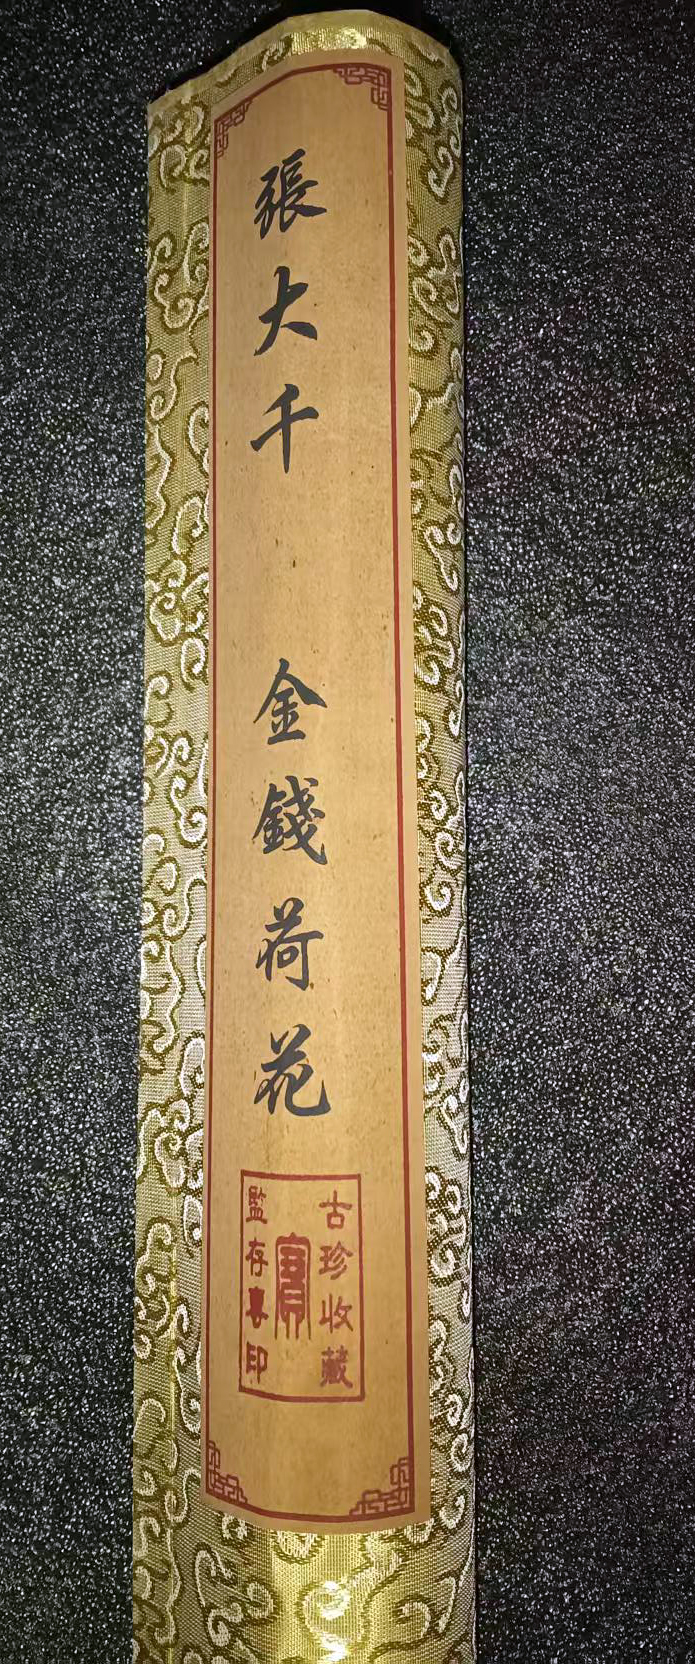 張大千 金錢荷花
古珍收藏
寶
監存專印